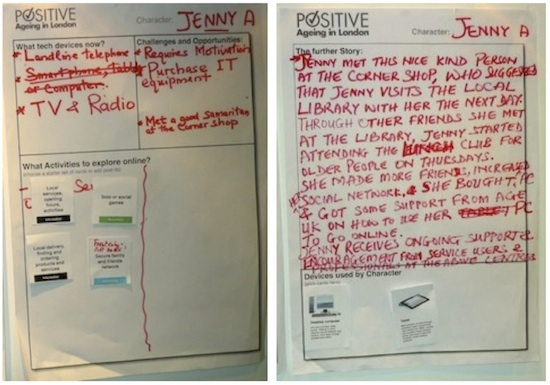 POSITIVE
Ageing in London
Character: JENNY A
What tech devices now?
* Landline telephone
* Smart phone, tablet
or Computer.
* TV & Radio
Challenges and Opportunities:
* Requires Motivation
* Purchase IT
equipment
* Met a good Samaritan
at the corner shop
What Activities to explore online?
Local
services,
opening
hours,
activities
Solo or social
games
Local delivery,
finding and
ordering
products and
services
Secure family
and friends
network
POSITIVE
Ageing in London
Character: JENNY A
The further Story:
JENNY MET THIS NICE KIND PERSON
AT THE CORNER SHOP, WHO SUGGESTED
THAT JENNY VISITS THE LOCAL
LIBRARY WITH HER THE NEXT DAY.
THROUGH OTHER FRIENDS SHE MET
AT THE LIBRARY, JENNY STARTED
ATTENDING THE LUNCH CLUB FOR
OLDER PEOPLE ON THURSDAYS.
SHE MADE MORE FRIENDS, INCREASED
SOCIAL NETWORK, & SHE BOUGHT, PC
& GOT SOME SUPPORT FROM AGE
UK ON HOW TO USE HER TABLET PC
TO GO ONLINE.
JENNY RECEIVES ONGOING SUPPORT &
ENCOURAGEMENT FROM SERVICE USERS &
PROFESSIONALS AT THE ABOVE CENTRES
Devices used by Character
Desktop computer